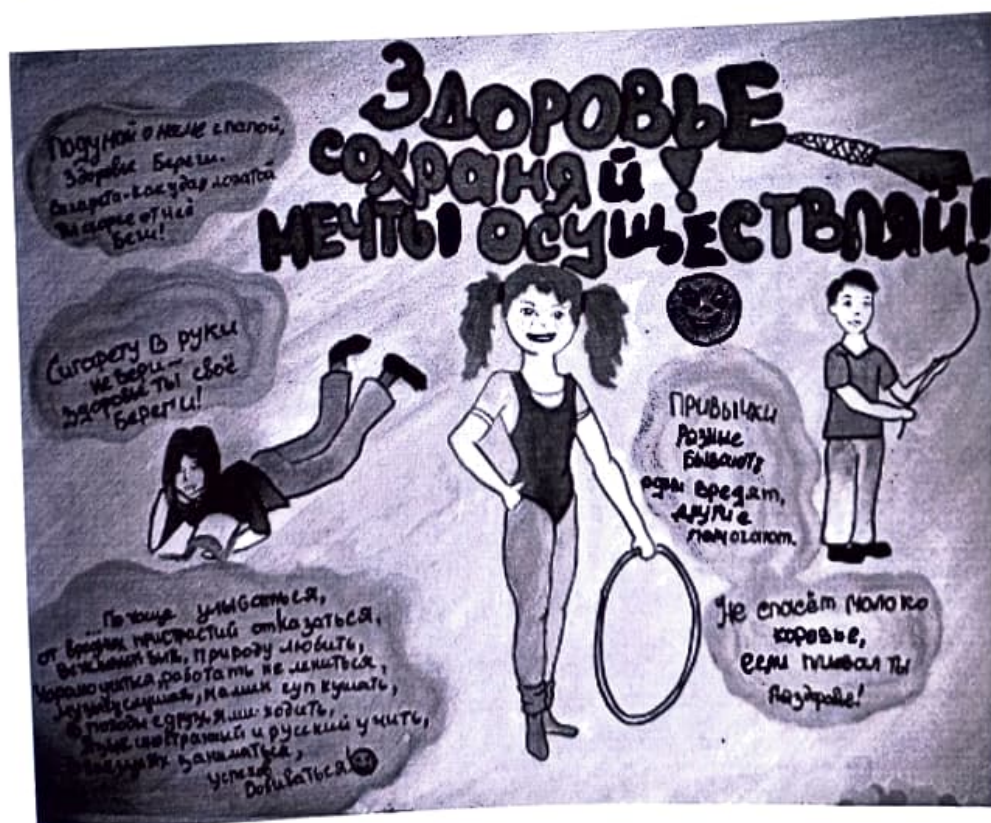 ЗДОРОВЬЕ
СОХРАНЯЙ!
МЕЧТЫ ОСУЩЕСТВЛЯЙ!
Подумай о маме с папой,
Здоровье Береги.
Сигарета-как удар лопатой
Ты скорее от неё
Беги!
Сигарету в руки
не бери-
Здоровье ты своё
Береги!
Привычки
разные
бывают:
одни вредят,
другие
помогают.
Не спасёт молоко
коровье,
если плевал ты
на здоровье!
Почаще улыбаться,
от вредных пристрастий отказаться,
природу любить,
хорошо учится, работать не лениться,
музыку слушать, мамин суп кушать,
в походы с друзьями ходить,
и русский учить,
заниматься,
успехов
Добиваться!